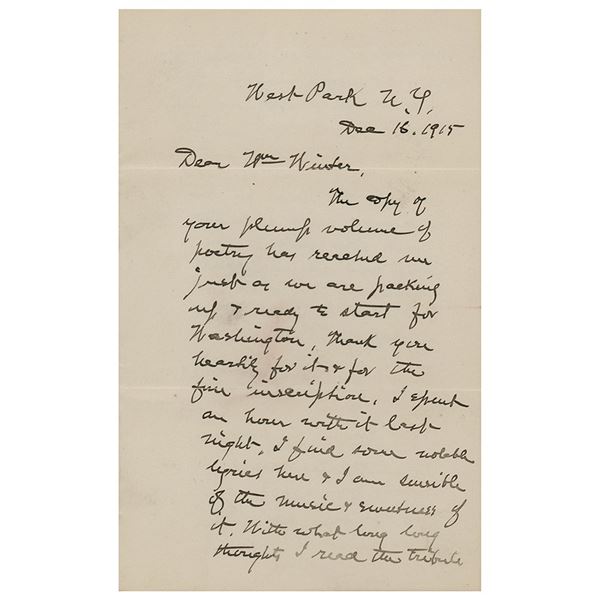 West Park N.Y,
Dec 16. 1915
Dear Wm Winter,
The copy of
your plump volume of
poetry has reached me
just as we are packing
up & ready to start for
Washington, Thank you
heartily for it & for the
fine inscription. I spent
an hour with it last
night, I find some notable
lyrics here & I am sensible
of the music & sweetness of
it. With what long long
thoughts I read the tribute